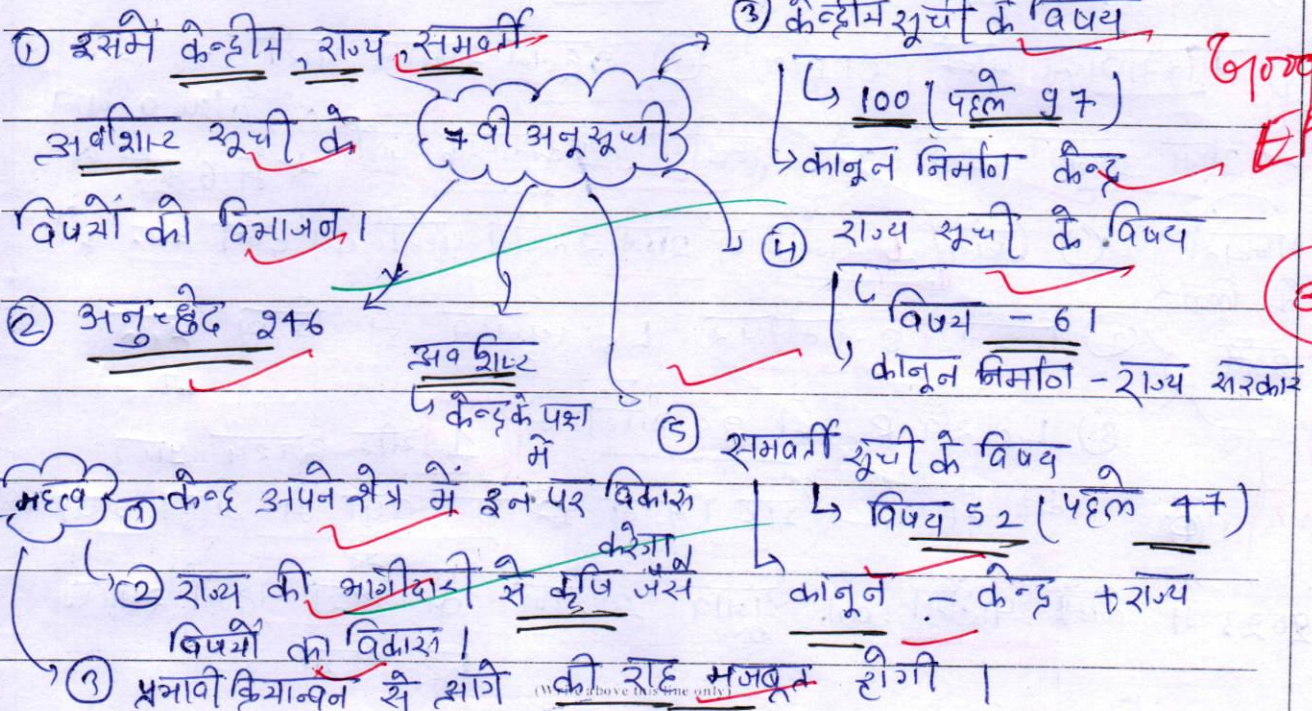 ① इसमें केन्द्रीय, राज्य, समवर्ती
अवशिष्ट सूची के
विषयों को विभाजन।
7 वी अनुसूची
② अनुच्छेद 246
अवशिष्ट
↳ केन्द्र के पक्ष
में
③ केन्द्रीय सूची के विषय
↳ 100 (पहले 97)
↳ कानून निर्माण केन्द्र
④ राज्य सूची के विषय
विषय - 61
कानून निर्माण - राज्य सरकार
⑤ समवर्ती सूची के विषय
↳ विषय 52 (पहले 47)
कानून केन्द्र + राज्य
महत्व
① केन्द्र अपने क्षेत्र में इन पर विकास
करेगा
② राज्य की भागीदारी से कृषि जैसे
विषयों का विकास।
③ प्रभावी क्रियान्वन से आगे की राह मजबूत होगी।
(Write above this line only)
Good